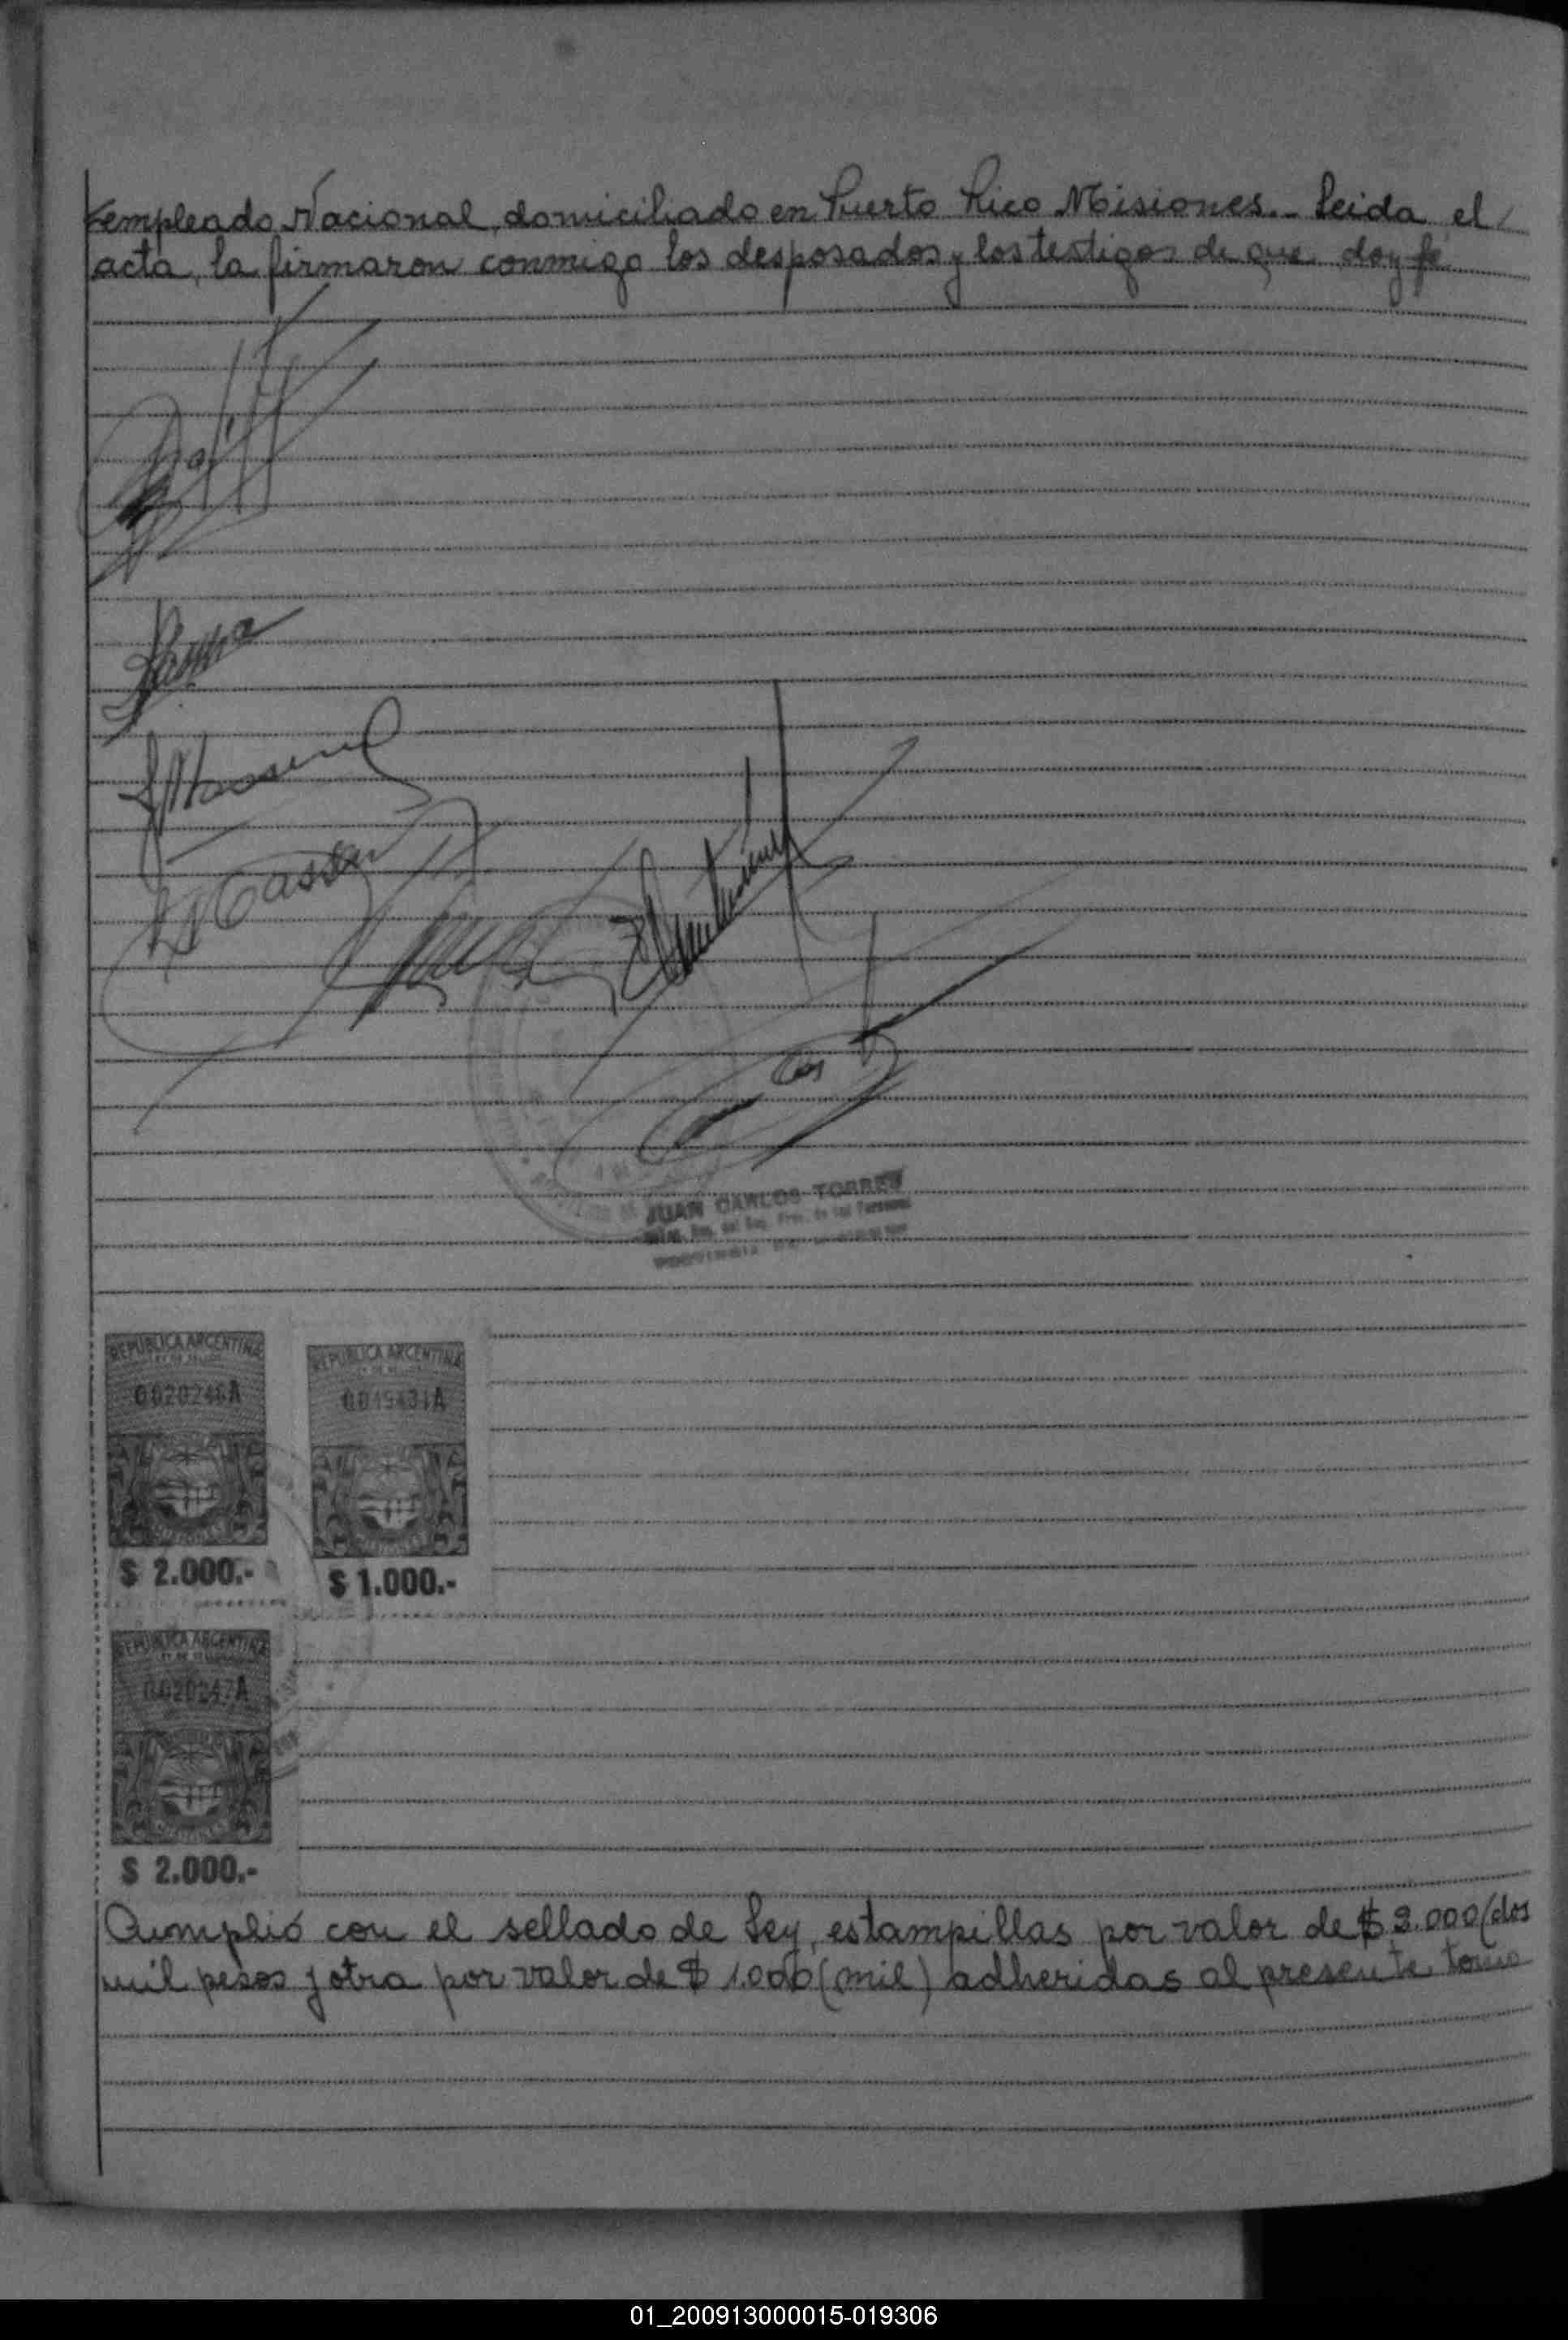 empleado Nacional, domiciliado en Puerto Rico Misiones.- Leida el
acta, la firmaron conmigo los desposados y los testigos de que doy fé
JUAN CARLOS TORRES
REPUBLICA ARGENTINA
0020246A
$ 2.000.-
REPUBLICA ARGENTINA
0049431A
$ 1.000.-
REPUBLICA ARGENTINA
0020247A
$ 2.000.-
Cumplió con el sellado de Ley, estampillas por valor de $ 2.000 (dos
mil pesos y otra por valor de $ 1.000 (mil) adheridas al presente tomo
01_200913000015-019306